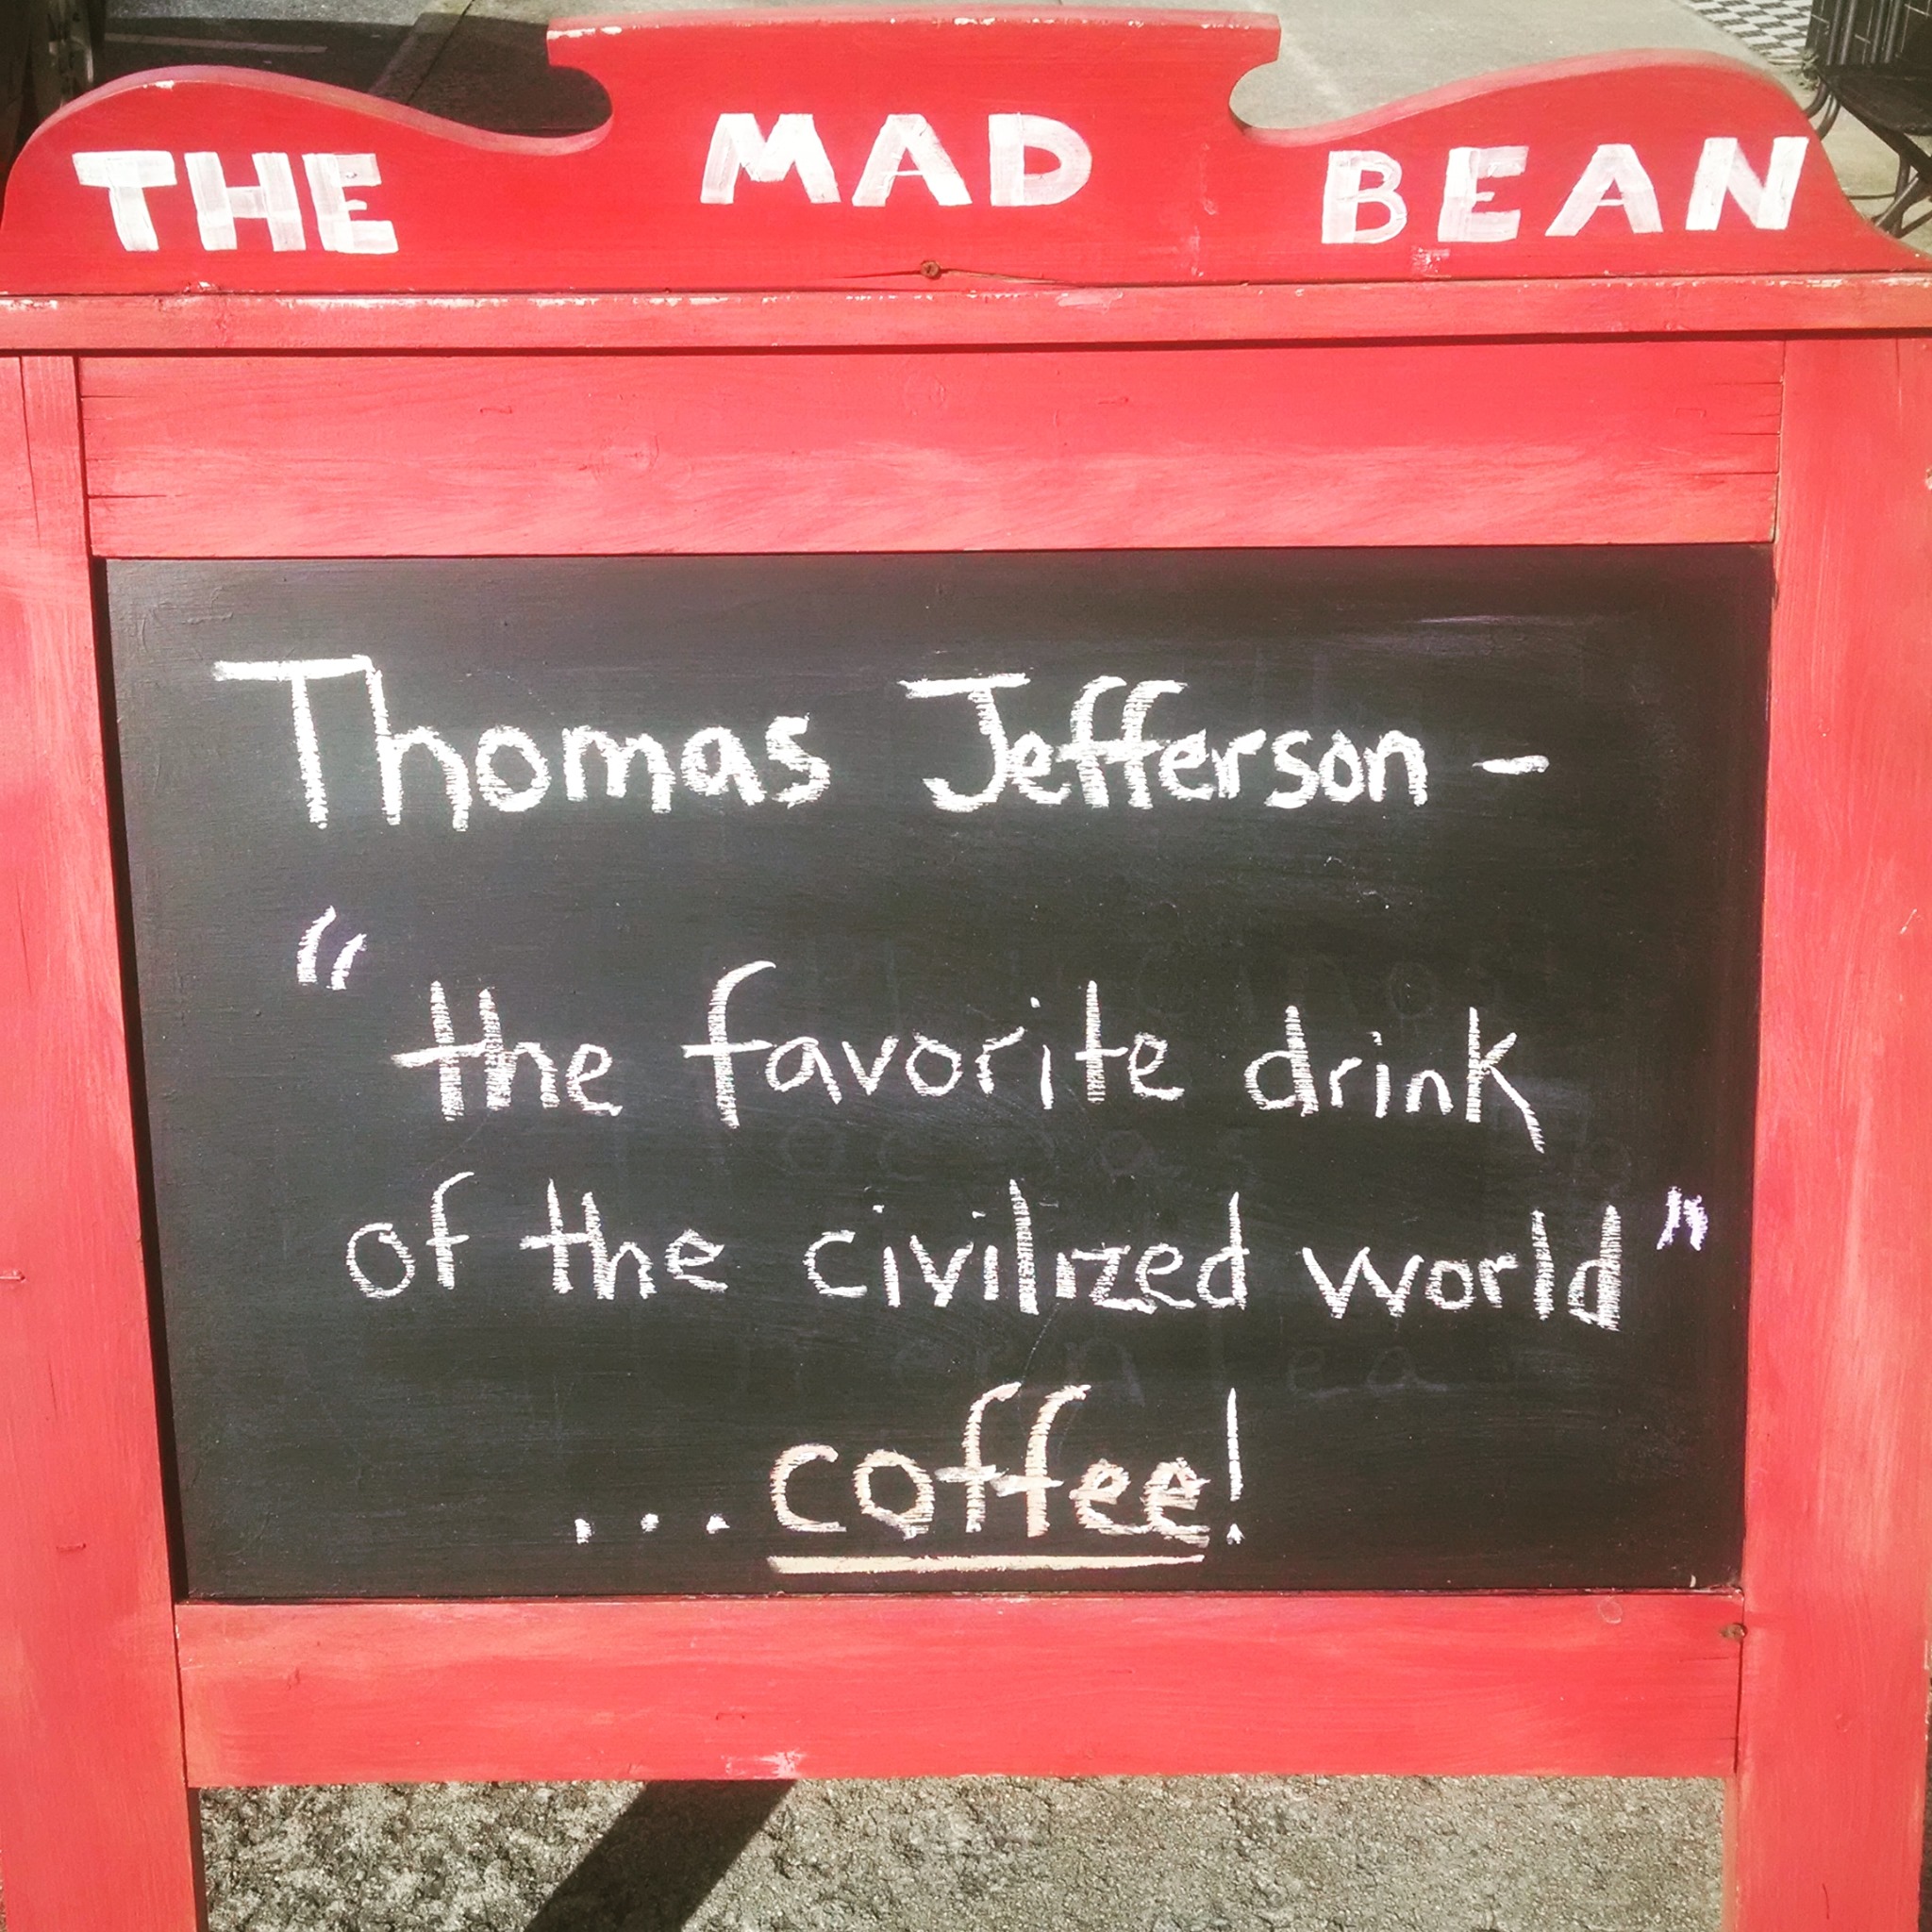 THE MAD BEAN
Thomas Jefferson -
“the favorite drink
of the civilized world”
...coffee!